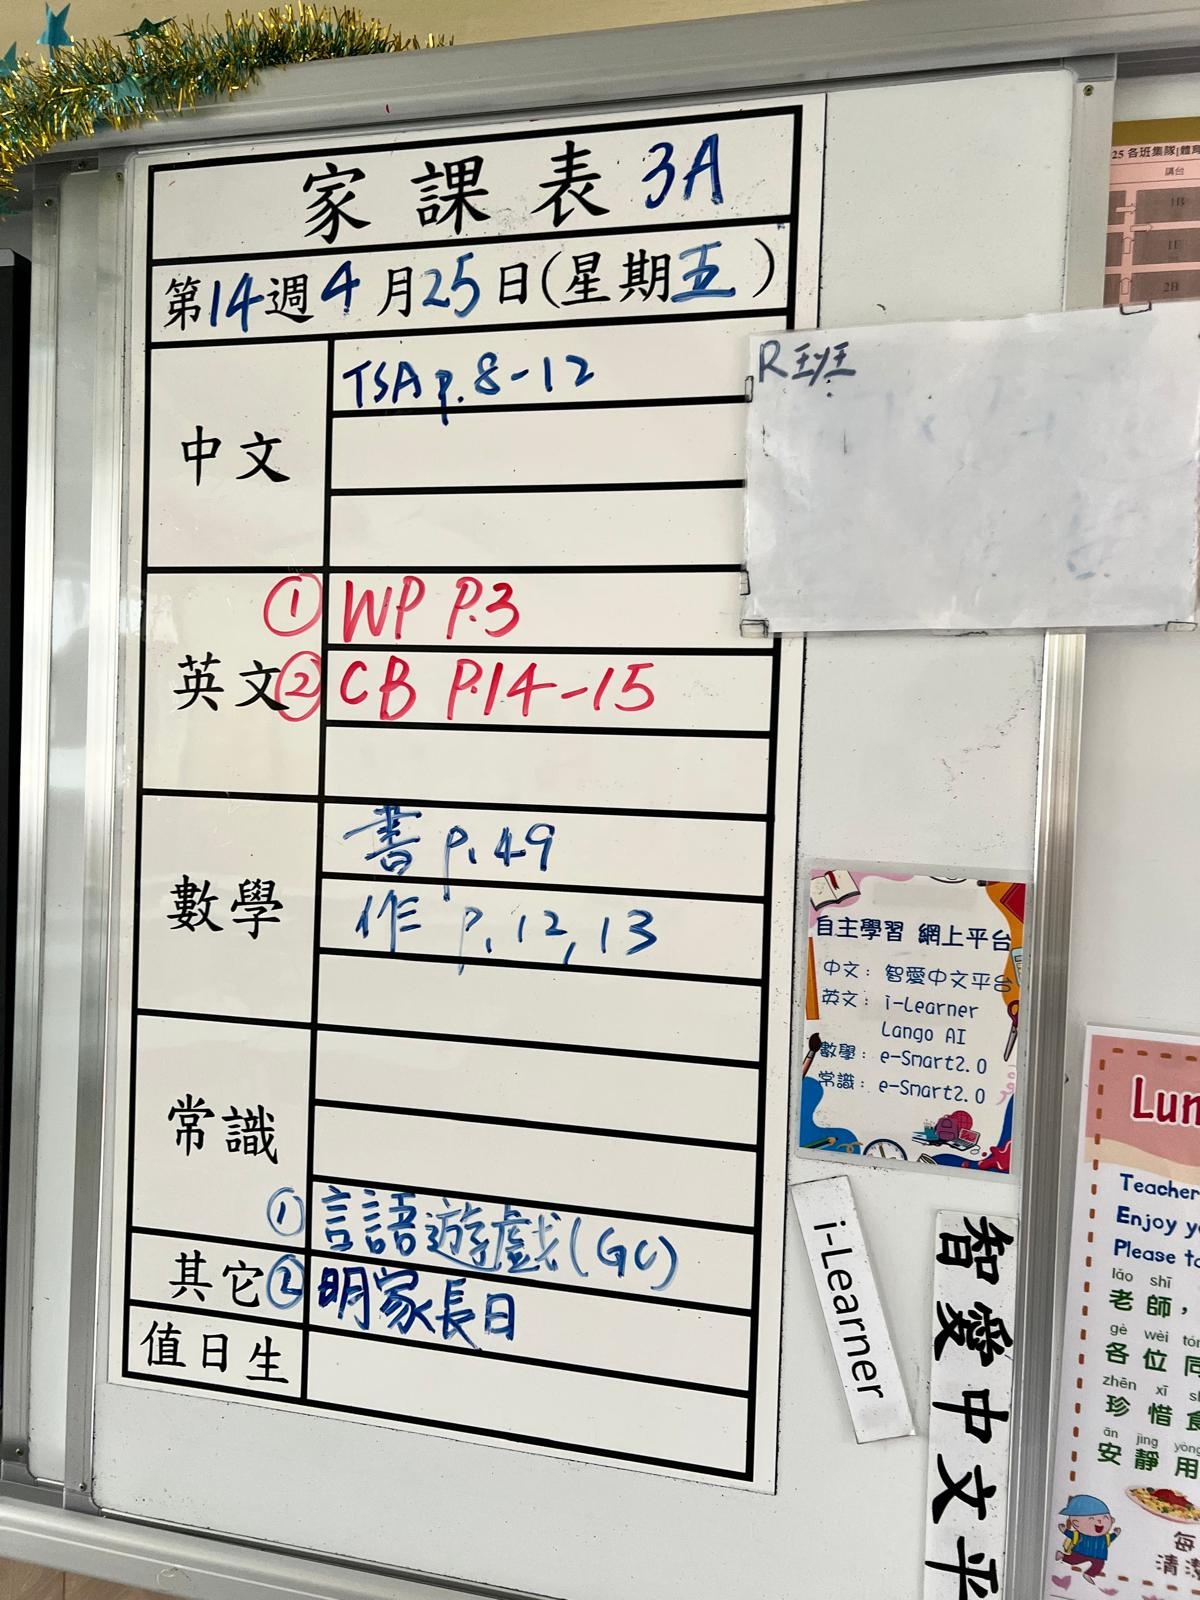 家課表 3A
第14週4月25日(星期五)
中文
TSA p.8-12
英文
① WP P.3
② CB P.14-15
數學
書 p.49
作 p.12,13
常識
其它
① 言語遊戲(GC)
② 明家長日
值日生
R班
25 各班集隊[體育
講台
1B
1E
2B
自主學習 網上平台
中文：智愛中文平台
英文：i-Learner
Lango AI
數學：e-Smart2.0
常識：e-Smart2.0
i-Learner
智愛中文平
Lun
Teacher
Enjoy y
Please to
lǎo shī
老師，
gè wèi tó
各位同
zhēn xī sh
珍惜食
ān jìng yòng
安靜用
每
清潔